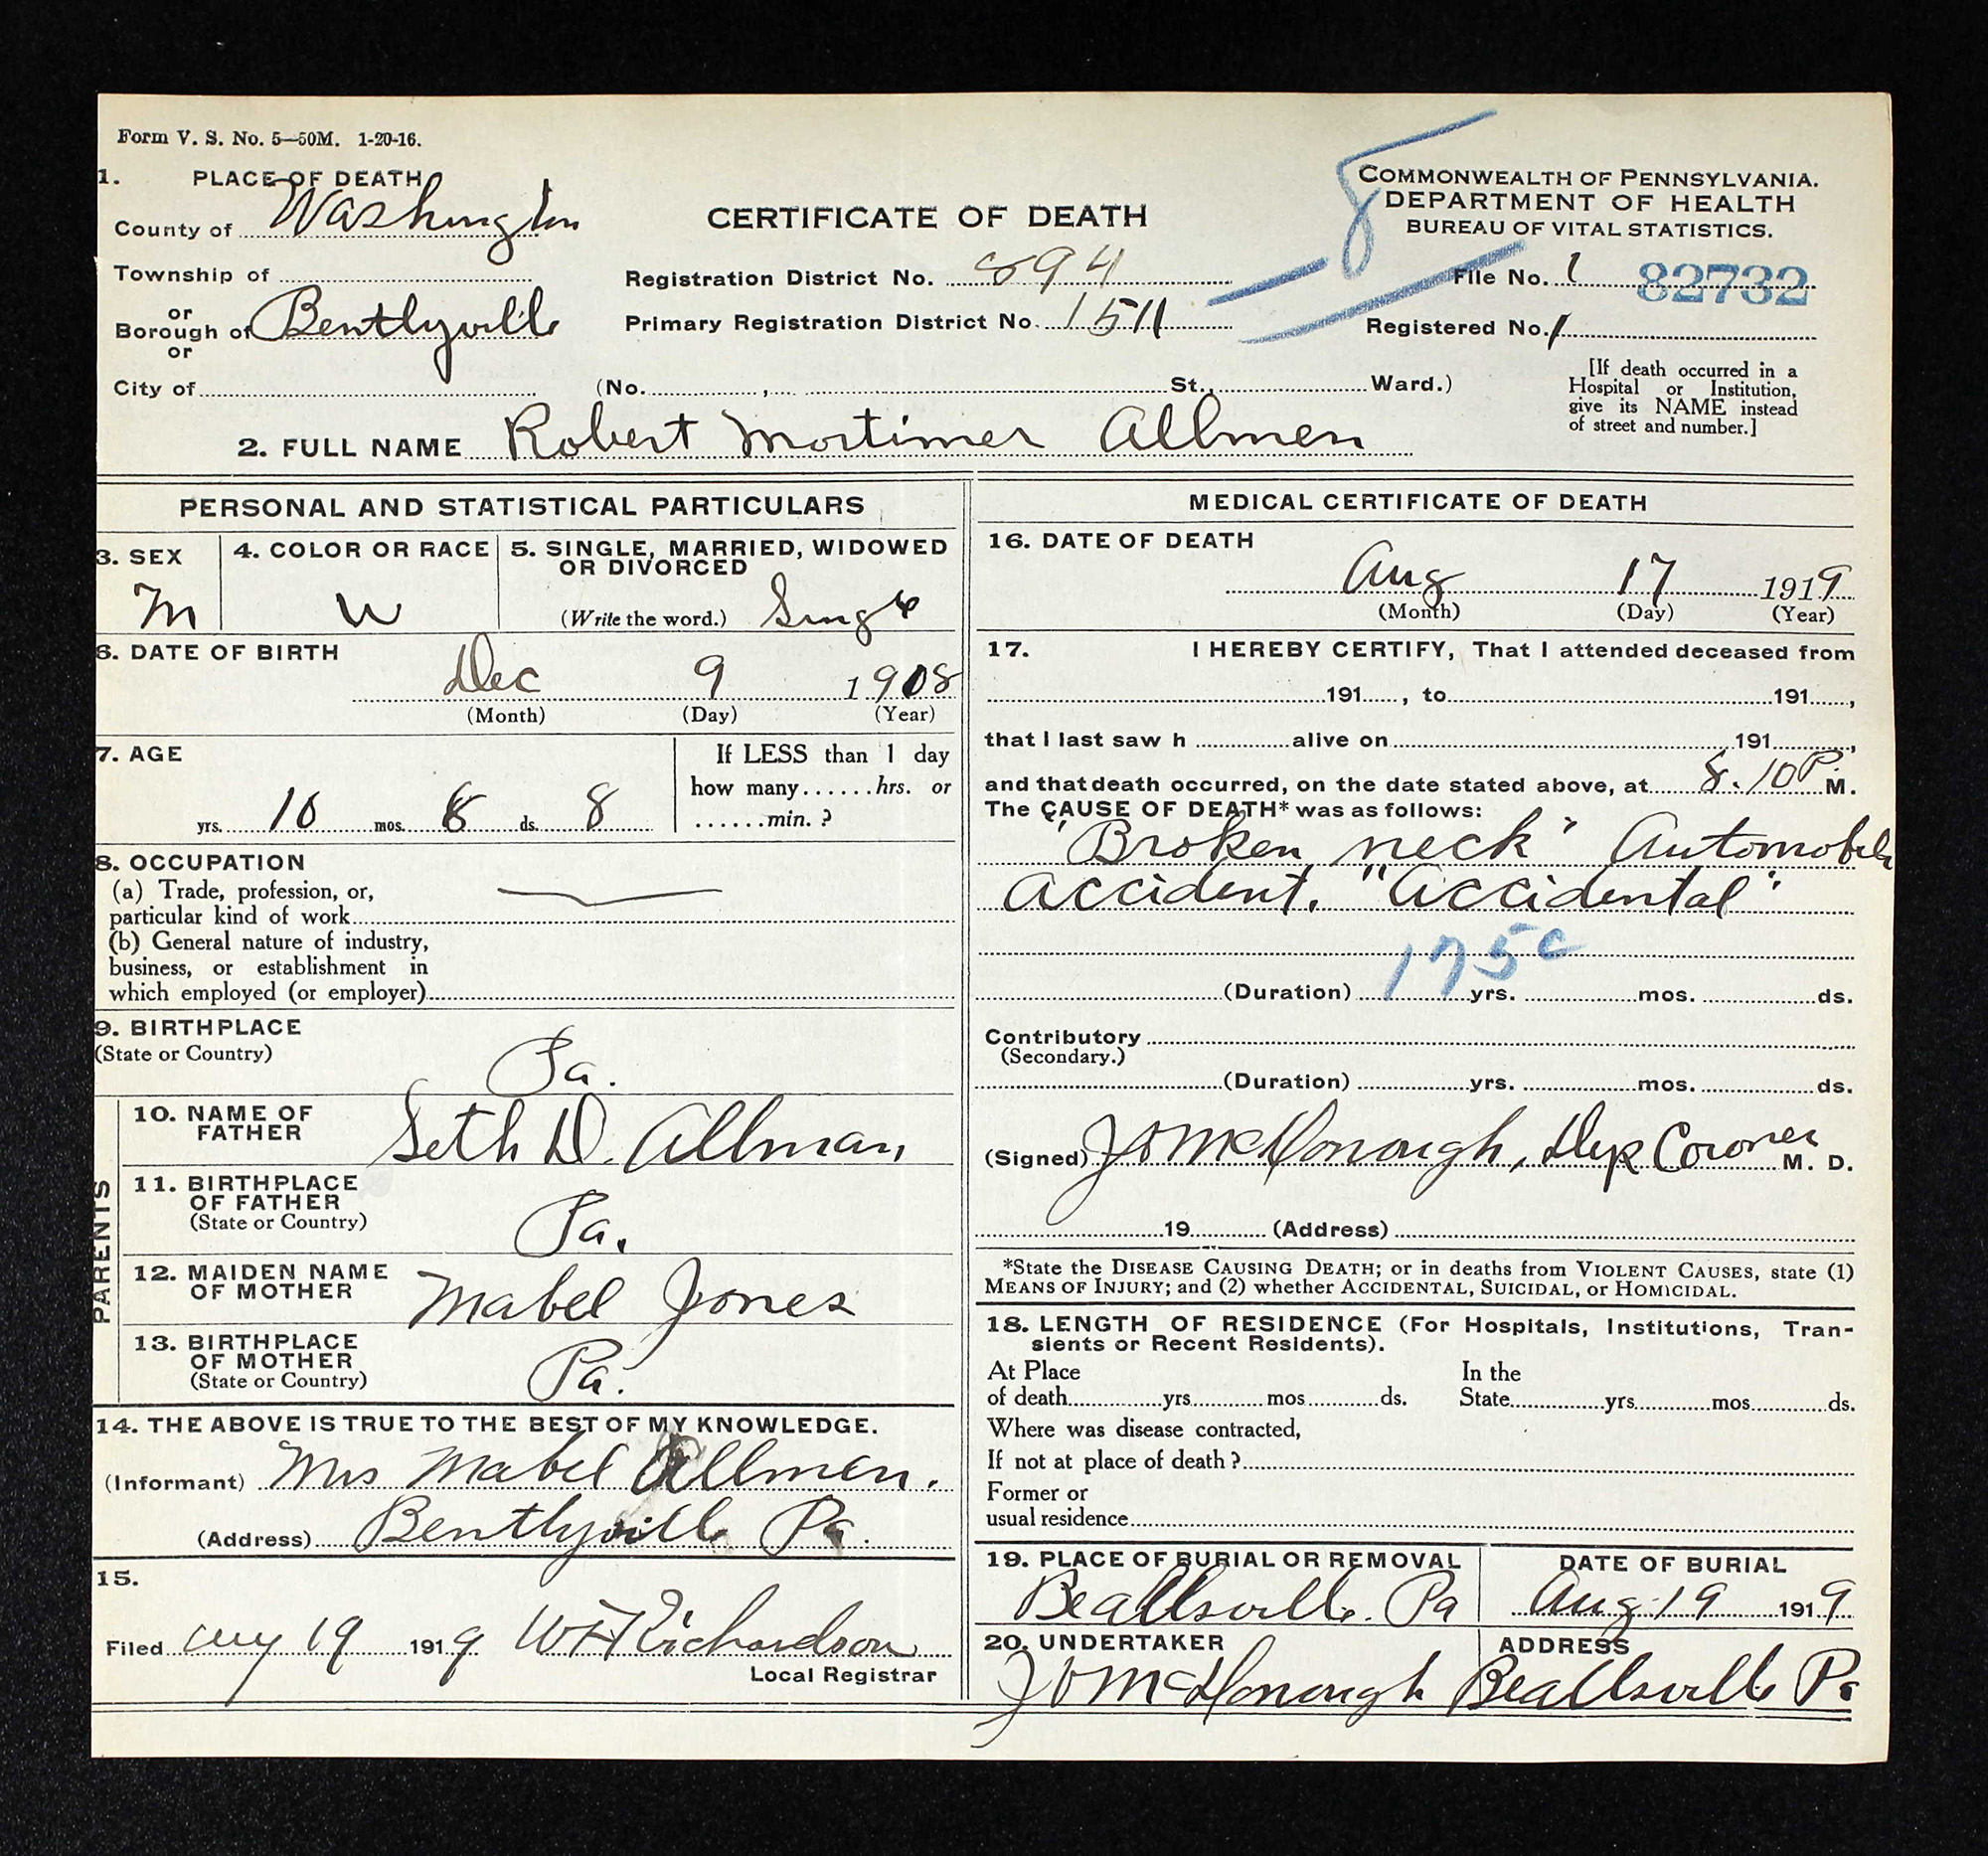 Form V. S. No. 5—50M. 1-20-16.
1. PLACE OF DEATH
County of Washington
Township of
or
Borough of Bentlyville
or
City of
CERTIFICATE OF DEATH
Registration District No. 894
Primary Registration District No. 1511
(No. , St., Ward.)
COMMONWEALTH OF PENNSYLVANIA.
DEPARTMENT OF HEALTH
BUREAU OF VITAL STATISTICS.
File No. 1 82732
Registered No. 1
[If death occurred in a
Hospital or Institution,
give its NAME instead
of street and number.]
2. FULL NAME Robert Mortimer Allmen
PERSONAL AND STATISTICAL PARTICULARS
3. SEX
M
4. COLOR OR RACE
W
5. SINGLE, MARRIED, WIDOWED
OR DIVORCED
(Write the word.) Single
6. DATE OF BIRTH
Dec 9 1908
(Month) (Day) (Year)
7. AGE
yrs. 10 mos. 8 ds. 8
If LESS than 1 day
how many......hrs. or
......min. ?
8. OCCUPATION
(a) Trade, profession, or,
particular kind of work
(b) General nature of industry,
business, or establishment in
which employed (or employer)
9. BIRTHPLACE
(State or Country)
Pa.
PARENTS
10. NAME OF
FATHER
Seth D. Allman
11. BIRTHPLACE
OF FATHER
(State or Country)
Pa.
12. MAIDEN NAME
OF MOTHER
Mabel Jones
13. BIRTHPLACE
OF MOTHER
(State or Country)
Pa.
14. THE ABOVE IS TRUE TO THE BEST OF MY KNOWLEDGE.
(Informant) Mrs Mabel Allmen.
(Address) Bentlyville Pa.
15.
Filed Aug 19 1919 W H Richardson
Local Registrar
MEDICAL CERTIFICATE OF DEATH
16. DATE OF DEATH
Aug 17 1919
(Month) (Day) (Year)
17. I HEREBY CERTIFY, That I attended deceased from
191....., to 191.....,
that I last saw h alive on 191.....,
and that death occurred, on the date stated above, at 8.10 P. M.
The CAUSE OF DEATH* was as follows:
"Broken neck" Automobile
accident. "Accidental"
175c
(Duration) yrs. mos. ds.
Contributory
(Secondary.)
(Duration) yrs. mos. ds.
(Signed) J O McDonough, Dep Coroner M. D.
19 (Address)
*State the DISEASE CAUSING DEATH; or in deaths from VIOLENT CAUSES, state (1)
MEANS OF INJURY; and (2) whether ACCIDENTAL, SUICIDAL, or HOMICIDAL.
18. LENGTH OF RESIDENCE (For Hospitals, Institutions, Tran-
sients or Recent Residents).
At Place In the
of death yrs mos ds. State yrs mos ds.
Where was disease contracted,
If not at place of death ?
Former or
usual residence
19. PLACE OF BURIAL OR REMOVAL
Beallsville. Pa
DATE OF BURIAL
Aug 19 1919
20. UNDERTAKER
J O McDonough
ADDRESS
Beallsville Pa